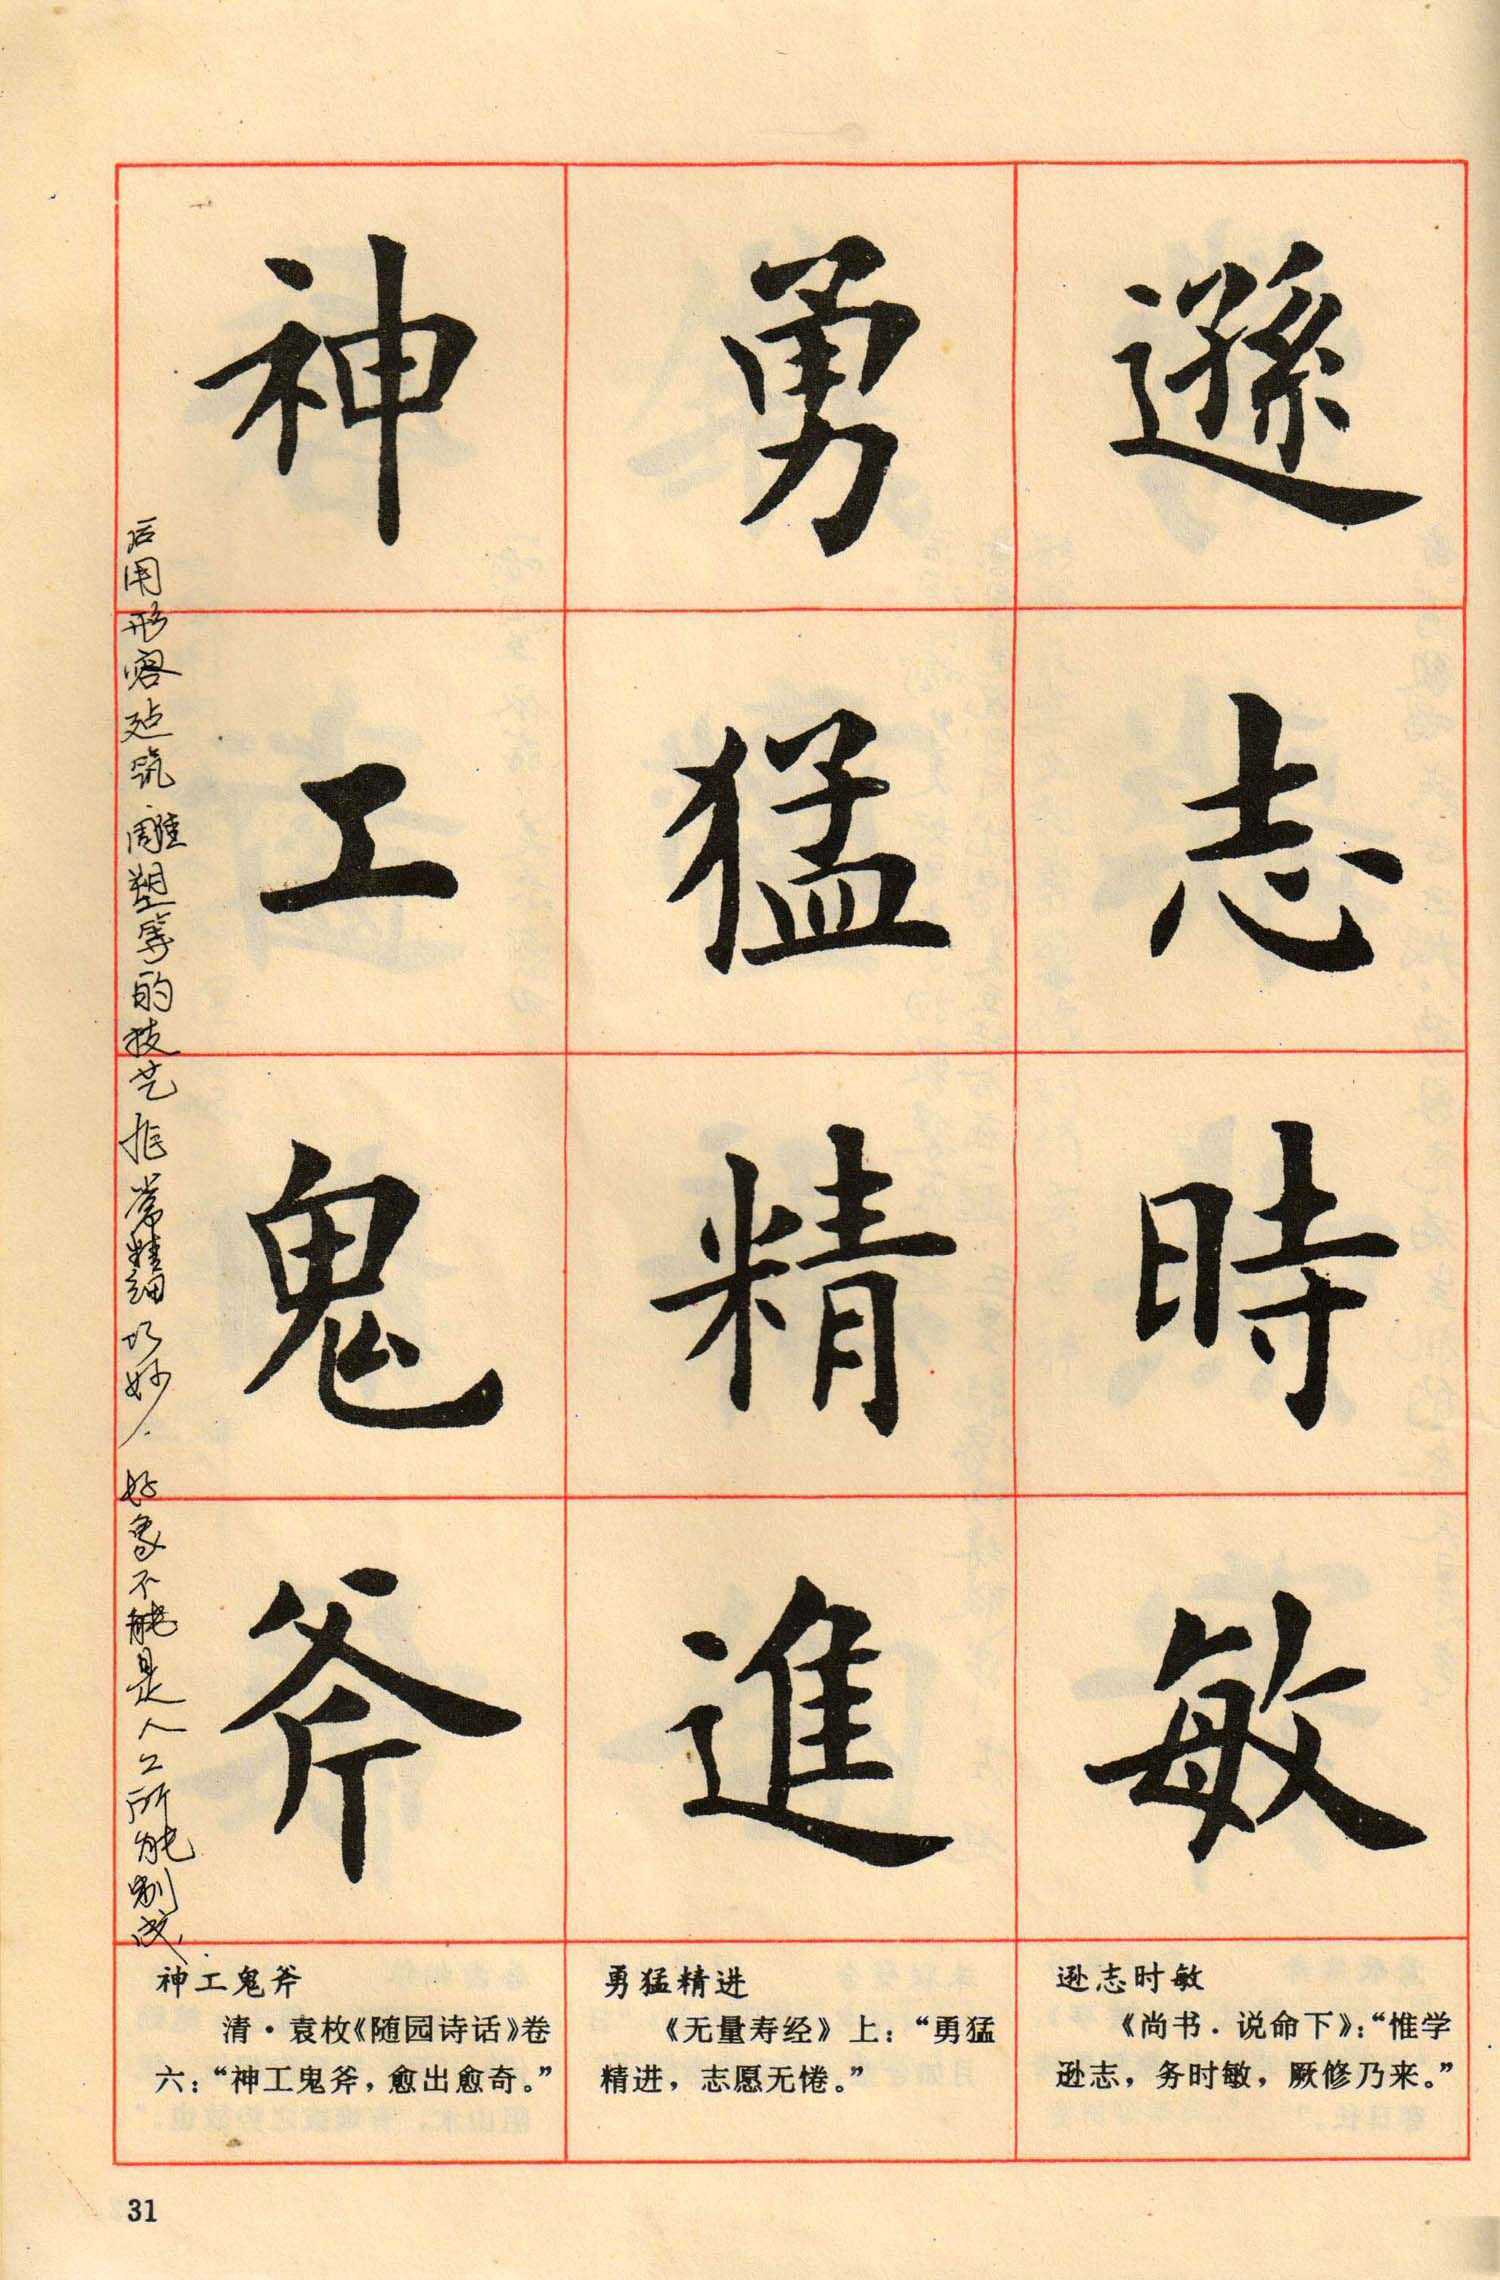 遜志時敏
勇猛精進
神工鬼斧
后用形容建筑雕塑等的技艺非常精细巧妙.好象不能是人工所能制成.
逊志时敏
《尚书·说命下》：“惟学
逊志，务时敏，厥修乃来。”
勇猛精进
《无量寿经》上：“勇猛
精进，志愿无倦。”
神工鬼斧
清·袁枚《随园诗话》卷
六：“神工鬼斧，愈出愈奇。”
31